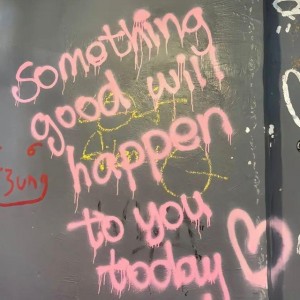 Something
good will
happen
to you
today